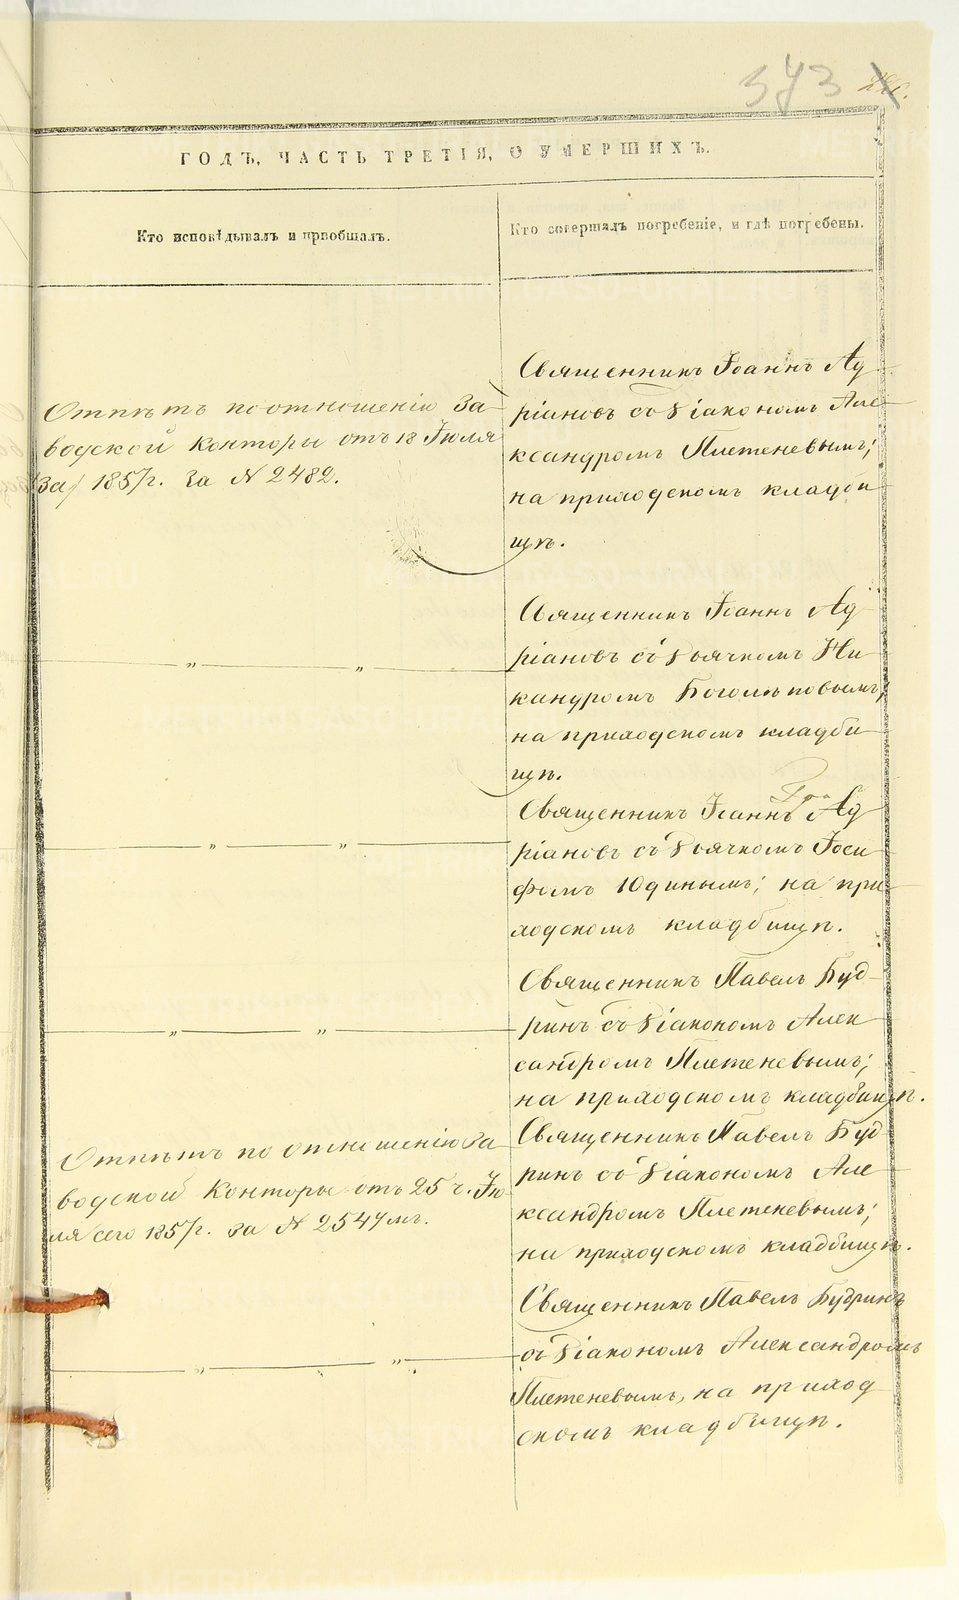 573
ГОДЪ, ЧАСТЬ ТРЕТІЯ, О УМЕРШИХЪ.
Кто исповѣдывалъ и пріобщалъ.
Кто совершалъ погребеніе, и гдѣ погребены.
Отпѣтъ по отношенію За-
водской Конторы отъ 18 Іюля
за 1857 г. За N 2482.
Священникъ Іоаннъ Ад-
ріановъ съ Діакономъ Але-
ксандромъ Плетеневымъ;
на приходскомъ кладби-
щѣ.
„ „
Священникъ Іоаннъ Ад-
ріановъ съ Дьячкомъ Ни-
кандромъ Боголѣповымъ;
на приходскомъ кладби-
щѣ.
„ „
Священникъ Іоаннъ Ад-
ріановъ съ Дьячкомъ Іоси-
фомъ Юдинымъ; на при-
ходскомъ кладбищѣ.
„ „
Священникъ Павелъ Буд-
ринъ съ Діакономъ Алек-
сандромъ Плетеневымъ;
на приходскомъ кладбищѣ.
Отпѣтъ по отношенію За-
водской Конторы отъ 25 ч. Ію-
ля сего 1857 г. за N 2547мъ.
Священникъ Павелъ Буд-
ринъ съ Діакономъ Але-
ксандромъ Плетеневымъ;
на приходскомъ кладбищѣ.
„ „
Священникъ Павелъ Будринъ
съ Діакономъ Александромъ
Плетеневымъ, на приход-
скомъ кладбищѣ.